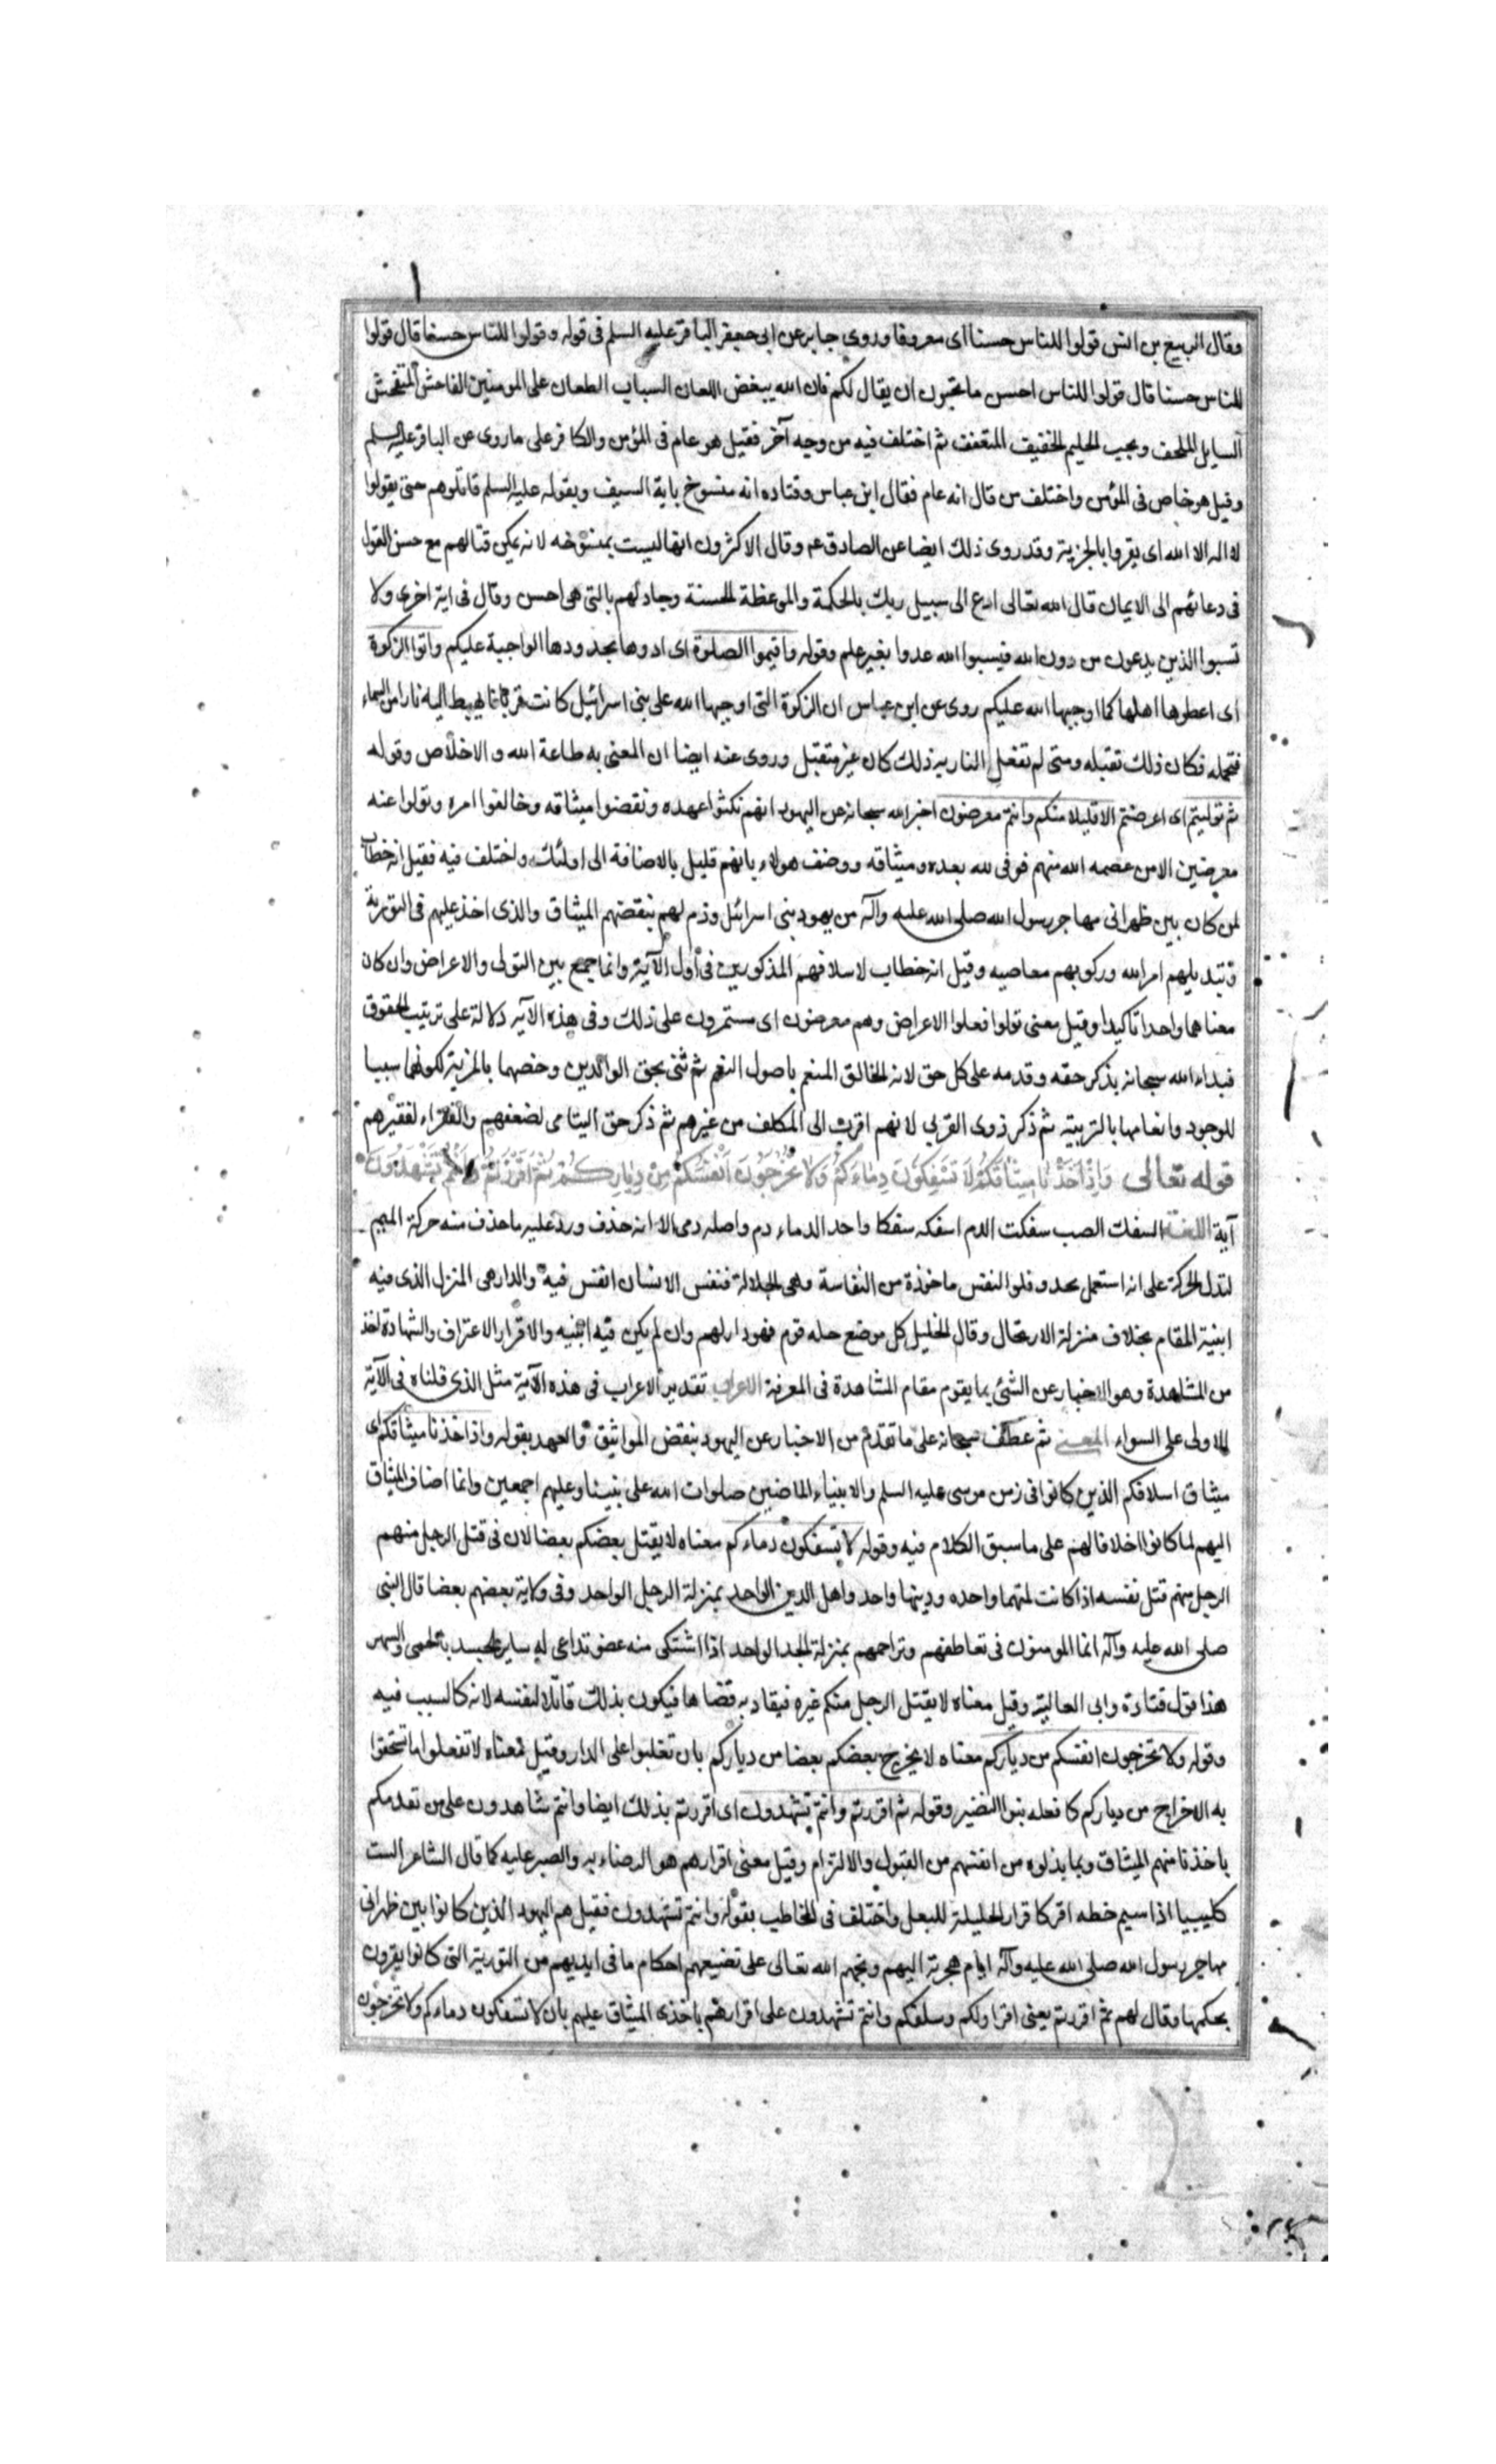 وقال الربيع بن انس قولوا للناس حسنا اى معروفا وروى جابر عن ابى جعفر الباقر عليه السلم فى قوله وقولوا للناس حسنا قال قولوا
للناس حسنا قال قولوا للناس احسن ما تحبون ان يقال لكم فان الله يبغض اللعان السباب الطعان على المومنين الفاحش المتفحش
السايل الملحف ويحب الحليم الخفيف المتعفف ثم اختلف فيه من وجه آخر فقيل هو عام فى المؤمن والكافر على ما روى عن الباقر عليه السلم
وقيل هو خاص فى المؤمن واختلف من قال انه عام فقال ابن عباس وقتاده انه منسوخ باية السيف وبقوله عليه السلم قاتلوهم حتى يقولوا
لا اله الا الله اى يقروا بالجزية وقد روى ذلك ايضا عن الصادق عم وقال الاكثرون انها ليست بمنسوخه لانه يمكن قتالهم مع حسن القول
فى دعائهم الى الايمان قال الله تعالى ادع الى سبيل ربك بالحكمة والموعظة الحسنة وجادلهم بالتى هى احسن وقال فى اية اخرى ولا
تسبوا الذين يدعون من دون الله فيسبوا الله عدوا بغير علم وقوله واقيموا الصلوة اى ادوها بحدودها الواجبة عليكم واتوا الزكوة
اى اعطوها اهلها كما اوجبها الله عليكم روى عن ابن عباس ان الزكوة التى اوجبها الله على بنى اسرائيل كانت قربانا تهبط اليه نار من السماء
فتحمله فكان ذلك تقبله ومتى لم تفعل النار به ذلك كان غير متقبل وروى عنه ايضا ان المعنى به طاعة الله والاخلاص وقوله
ثم توليتم اى اعرضتم الا قليلا منكم وانتم معرضون اخبر الله سبحانه عن اليهود انهم نكثوا عهده ونقضوا ميثاقه وخالفوا امره وتولوا عنه
معرضين الا من عصمه الله منهم فوفى لله بعهده وميثاقه ووصف هولاء بانهم قليل بالاضافة الى اولئك واختلف فيه فقيل انه خطاب
لمن كان بين ظهرانى مهاجر رسول الله صلى الله عليه وآله من يهود بنى اسرائل وذم لهم بنقضهم الميثاق والذى اخذ عليهم فى التورية
وتبديلهم امر الله وركوبهم معاصيه وقيل انه خطاب لاسلافهم المذكورين فى أول الآية وانما جمع بين التولى والاعراض وان كان
معناهما واحدا تاكيدا وقيل معنى تولوا فعلوا الاعراض وهم معرضون اى مستمرون على ذلك وفى هذه الآيه دلالة على ترتيب الحقوق
فبداء الله سبحانه بذكر حقه وقدمه على كل حق لانه الخالق المنعم باصول النعم ثم ثنى بحق الوالدين وخصهما بالمزية لكونهما سببا
للوجود وانعامهما بالتربيته ثم ذكر ذوى القربى لانهم اقرب الى المكلف من غيرهم ثم ذكر حق اليتامى لضعفهم والفقراء لفقرهم
قوله تعالى وَاِذْ اَخَذْنَا مِيثَاقَكُمْ لَا تَسْفِكُونَ دِمَاءَكُمْ وَلَا تُخْرِجُونَ اَنْفُسَكُمْ مِنْ دِيَارِكُمْ ثُمَّ اَقْرَرْتُمْ وَاَنْتُمْ تَشْهَدُونَ
آية اللغة السفك الصب سفكت الدم اسفكه سفكا واحد الدماء دم واصله دمى الا انه حذف ورد عليه ما حذف منه حركة الميم
لتدل الحركة على انه استعمل محذوفا والنفس ماخوذة من النفاسة وهى الجلالة فنفس الانسان انفس فيه والدار هى المنزل الذى فيه
ابنية المقام بخلاف منزلة الارتحال وقال الخليل كل موضع حله قوم فهو دار لهم وان لم يكن فيه ابنيه والاقرار الاعتراف والشهادة اخذ
من المشاهدة وهو الاخبار عن الشئ بما يقوم مقام المشاهدة فى المعرفة الاعراب تقدير الاعراب فى هذه الآية مثل الذى قلناه فى الآية
الاولى على السواء المعنى ثم عطف سبحانه على ما تقدم من الاخبار عن اليهود بنقض المواثيق والعهد بقوله واذ اخذنا ميثاقكم اى
ميثاق اسلافكم الذين كانوا فى زمن موسى عليه السلم والانبياء الماضين صلوات الله على نبينا وعليهم اجمعين وانما اضاف الميثاق
اليهم لما كانوا اخلافا لهم على ما سبق الكلام فيه وقوله لا تسفكون دماءكم معناه لا يقتل بعضكم بعضا لان فى قتل الرجل منهم
الرجل منهم قتل نفسه اذا كانت ملتهما واحده ودينهما واحد واهل الدين الواحد بمنزلة الرجل الواحد وفى ولاية بعضهم بعضا قال النبى
صلى الله عليه وآله انما المومنون فى تعاطفهم وتراحمهم بمنزلة الجسد الواحد اذا اشتكى منه عضو تداعى له ساير الجسد بالحمى والسهر
هذا قول قتادة وابى العالية وقيل معناه لا يقتل الرجل منكم غيره فيقاد به قصاصا فيكون بذلك قاتلا لنفسه لانه كالسبب فيه
وقوله ولا تخرجون انفسكم من دياركم معناه لا يخرج بعضكم بعضا من دياركم بان تغلبوا على الدار وقيل معناه لا تفعلوا ما تستحقوا
به الاخراج من دياركم كما فعله بنوا النضير وقوله ثم اقررتم وانتم تشهدون اى اقررتم بذلك ايضا وانتم شاهدون على من تقدمكم
باخذنا منهم الميثاق وبما بذلوه من انفسهم من القبول والالتزام وقيل معنى اقرارهم هو الرضاء به والصبر عليه كما قال الشاعر الست
كليبيا اذا سيم خطه اقر كاقرار الحليلة للبعل واختلف فى المخاطب بقوله وانتم تشهدون فقيل هم اليهود الذين كانوا بين ظهرانى
مهاجر رسول الله صلى الله عليه وآله ايام هجرته اليهم وبخهم الله تعالى على تضييعهم احكام ما فى ايديهم من التورية التى كانوا يقرون
بحكمها وقال لهم ثم اقررتم يعنى اقر اولكم وسلفكم وانتم تشهدون على اقرارهم باخذى الميثاق عليهم بان لا تسفكون دماءكم ولا تخرجون